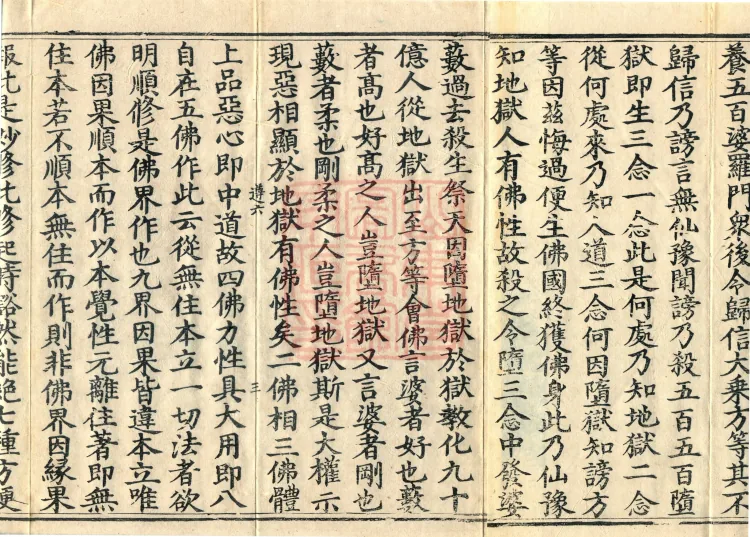 養五百婆羅門衆後令歸信大乗方等其不
歸信乃謗言無仙豫聞謗乃殺五百五百墮
獄即生三念一念此是何處乃知地獄二念
從何處來乃知人道三念何因墮獄知謗方
等因茲悔過便生佛國終獲佛身此乃仙豫
知地獄人有佛性故殺之令墮三念中發婆
藪過去殺生祭天因墮地獄於獄教化九十
億人從地獄出至方等會佛言婆者好也藪
者髙也好髙之人豈墮地獄又言婆者剛也
藪者柔也剛柔之人豈墮地獄斯是大權示
現惡相顯於地獄有佛性矣二佛相三佛體
遵六
三
上品惡心即中道故四佛力性具大用即八
自在五佛作此云從無住本立一切法者欲
明順修是佛界作也九界因果皆違本立唯
佛因果順本而作以本覺性元離住著即無
住本若不順本無住而作則非佛界因緣果
報此是妙修此修起時豁然能絶七種方便